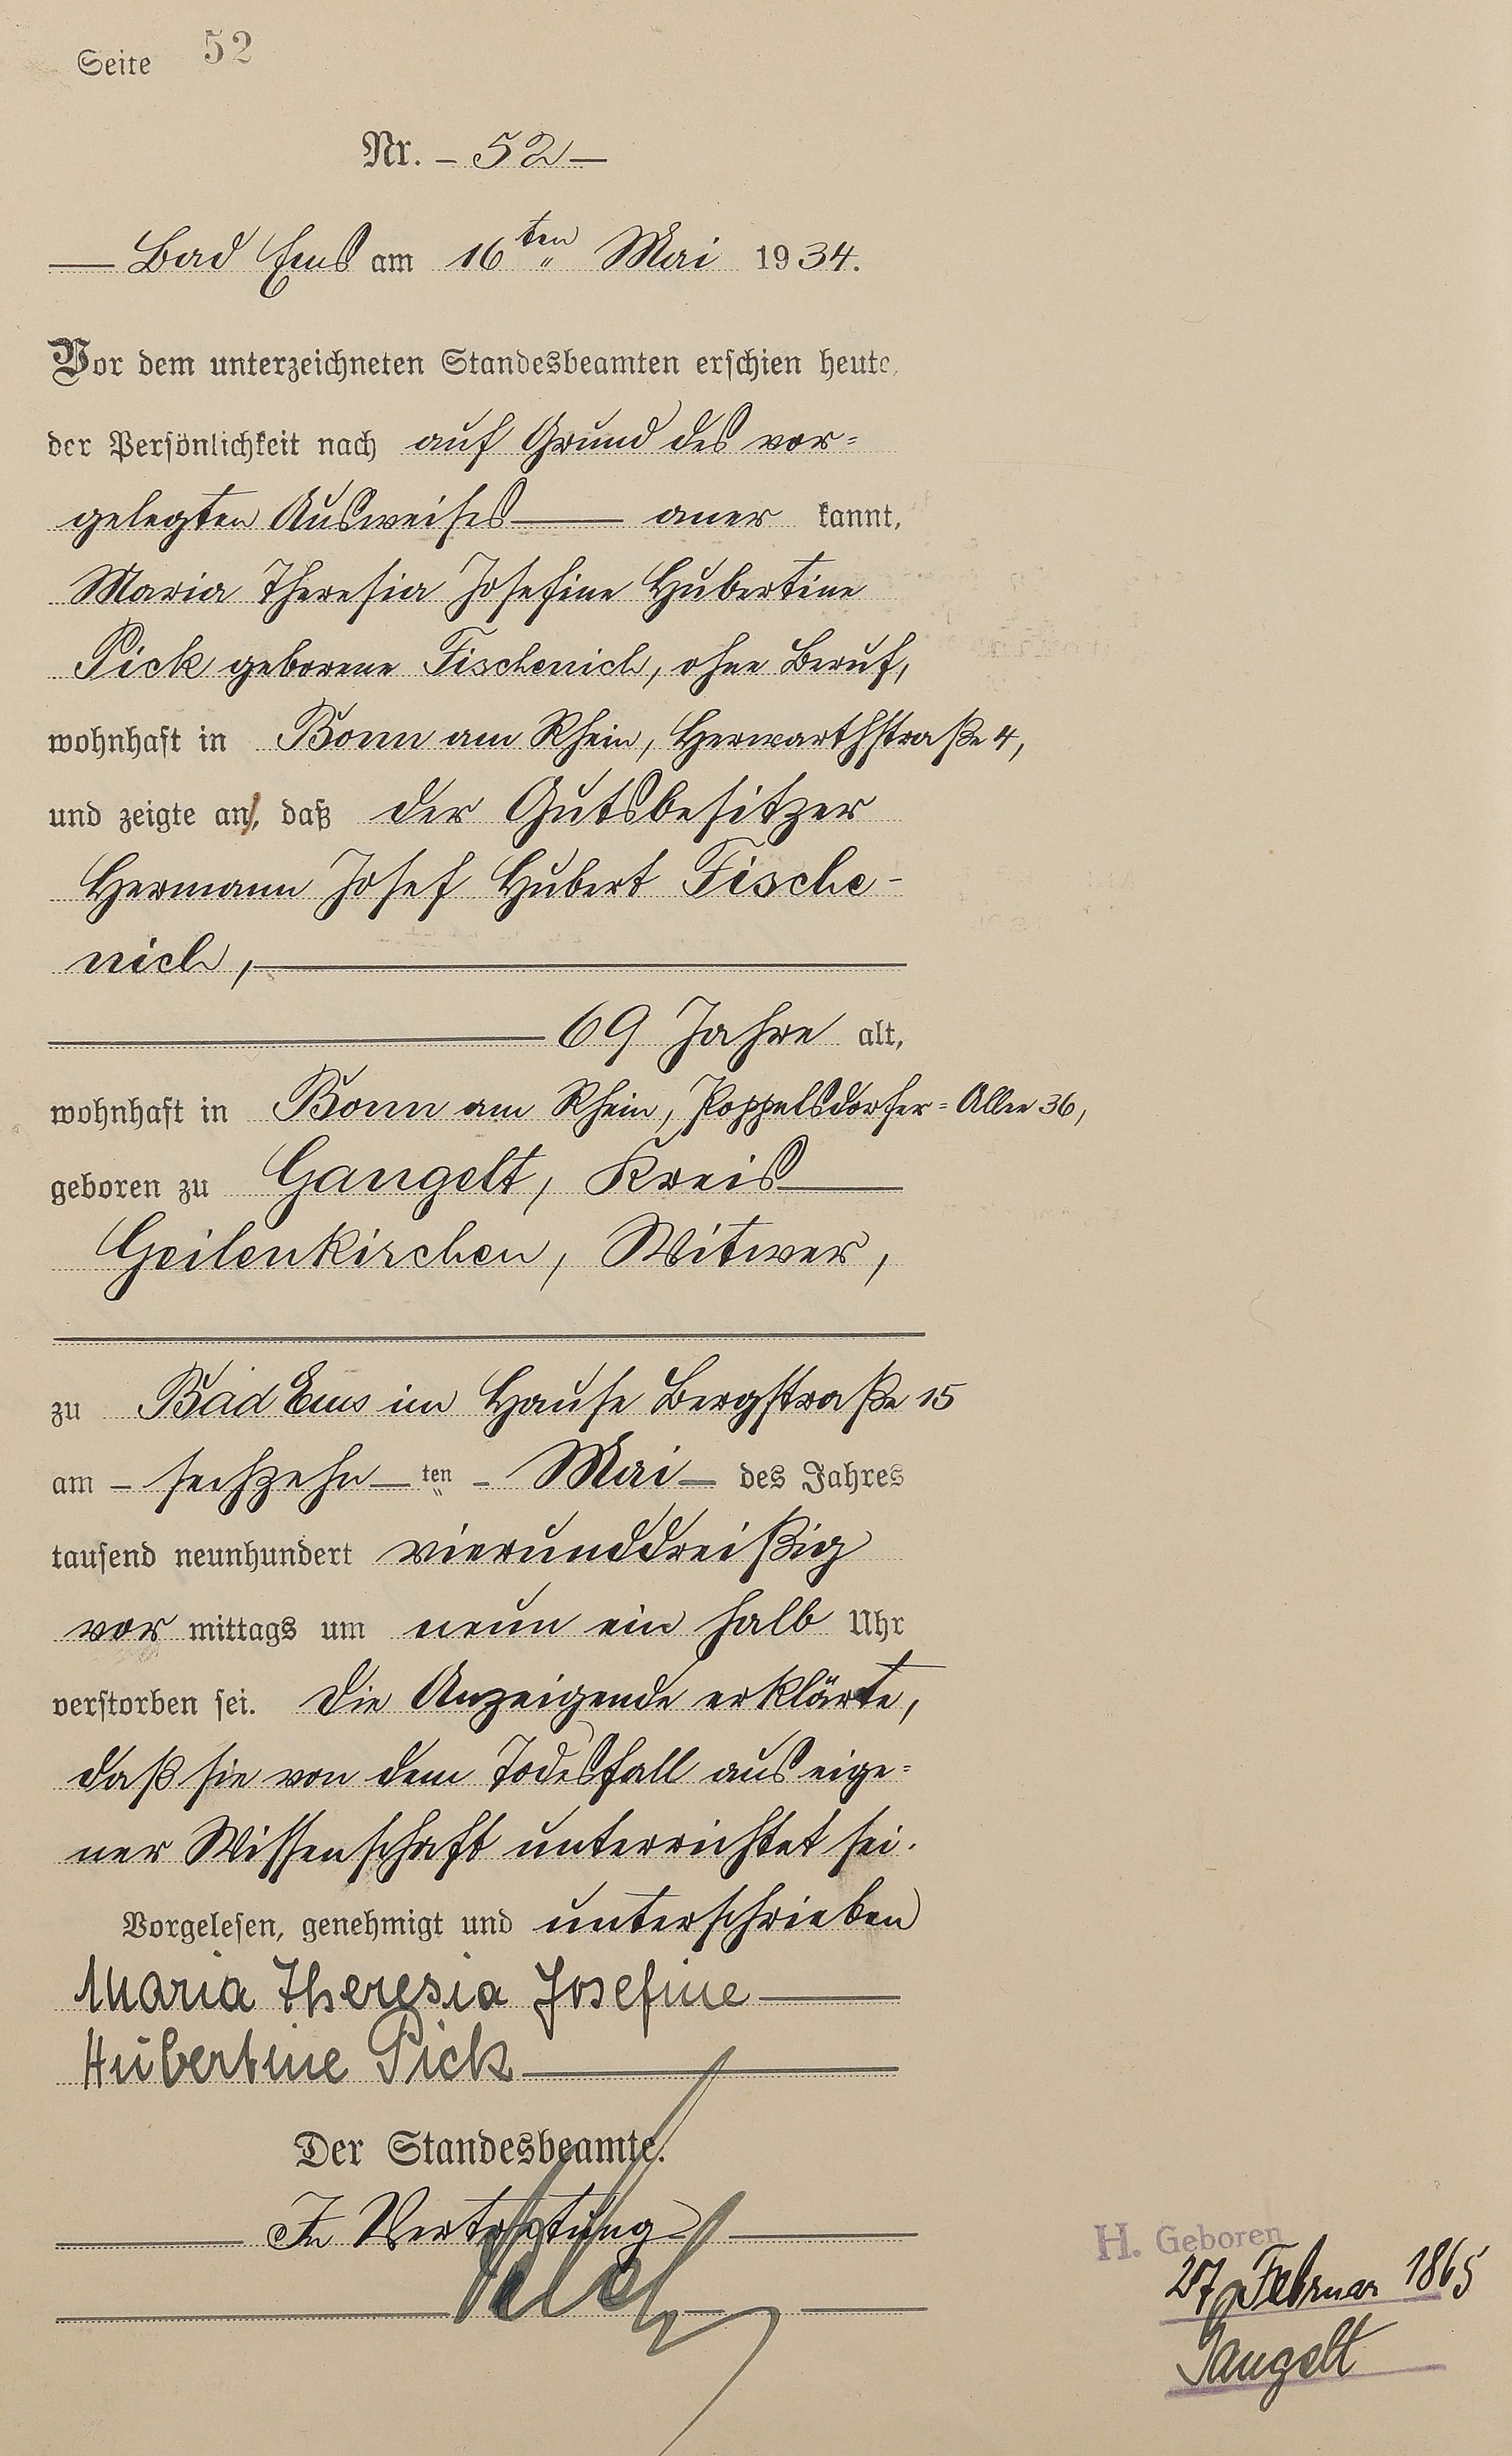 Seite 52
Nr. - 52 -
Bad Ems am 16ten Mai 1934.
Vor dem unterzeichneten Standesbeamten erschien heute,
der Persönlichkeit nach auf Grund des vor=
gelegten Ausweises — aner kannt,
Maria Theresia Josefine Hubertine
Pick geborene Fischenich, ohne Beruf,
wohnhaft in Bonn am Rhein, Herwarthstraße 4,
und zeigte an, daß der Gutsbesitzer
Hermann Josef Hubert Fische-
nich,
69 Jahre alt,
wohnhaft in Bonn am Rhein, Poppelsdorfer=Allee 36,
geboren zu Gangelt, Kreis
Geilenkirchen, Witwer,
zu Bad Ems im Hause Bergstraße 15
am - sechzehn - ten - Mai - des Jahres
tausend neunhundert vierunddreißig
vor mittags um neun ein halb Uhr
verstorben sei. Die Anzeigende erklärte,
daß sie von dem Todesfall aus eige=
ner Wissenschaft unterrichtet sei.
Vorgelesen, genehmigt und unterschrieben
Maria Theresia Josefine
Hubertine Pick
Der Standesbeamte.
In Vertretung
H. Geboren
27. Februar 1865
Gangelt